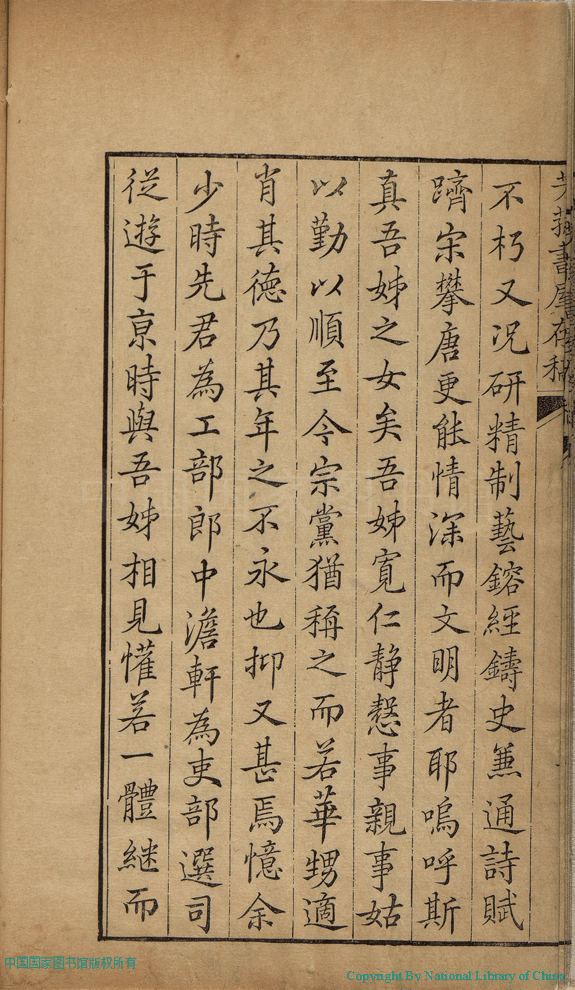 不朽又况研精制藝鎔經鑄史兼通詩賦
躋宋攀唐更能情深而文明者耶嗚呼斯
真吾姊之女矣吾姊寬仁静慤事親事姑
以勤以順至今宗黨猶稱之而若華甥適
肖其德乃其年之不永也抑又甚焉憶余
少時先君為工部郎中澹軒為吏部選司
從遊于京時與吾姊相見懽若一體継而
中国国家图书馆版权所有
Copyright By National Library of China